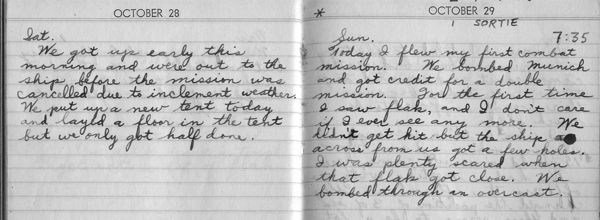 OCTOBER 28
Sat.
We got up early this
morning and were out to the
ship before the mission was
cancelled due to inclement weather.
We put up a new tent today
and layed a floor in the tent
but we only got half done.
* OCTOBER 29
1 SORTIE
Sun. 7:35
Today I flew my first combat
mission. We bombed Munich
and got credit for a double
mission. For the first time
I saw flak, and I don't care
if I ever see any more. We
didn't get hit but the ship
across from us got a few holes.
I was plenty scared when
that flak got close. We
bombed through an overcast.